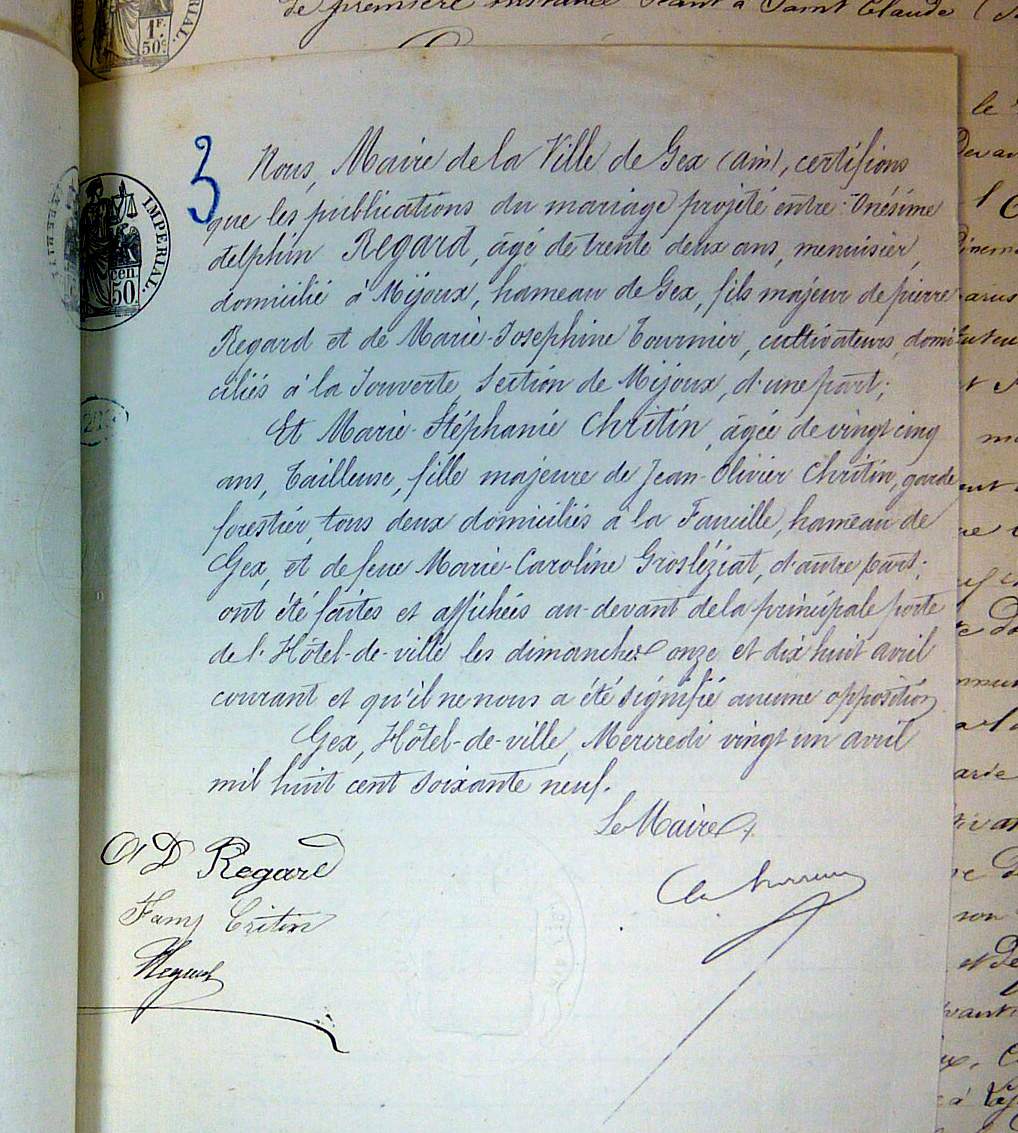 de première instance séant à Saint Claude
1F.
50c
IMPERIAL.
cen.
50.
3
Nous, Maire de la Ville de Gex (ain), certifions
que les publications du mariage projeté entre: Onésime
delphin Regard, âgé de trente deux ans, menuisier,
domicilié à Mijoux, hameau de Gex, fils majeur de pierre
Regard et de Marie-Josephine Tournier, cultivateurs, domi
ciliés à la Jouverte, Section de Mijoux, d'une part;
Et Marie-Stéphanie Chritin, âgée de vingt cinq
ans, Tailleuse, fille majeure de Jean-Olivier Chritin, garde
forestier, tous deux domiciliés à la Faucille, hameau de
Gex, et de feue Marie-Caroline Grosléziat, d'autre part;
ont été faites et affichées au-devant de la principale porte
de l'Hôtel-de-ville les dimanches onze et dix huit avril
courant et qu'il ne nous a été signifié aucune opposition
Gex, Hôtel-de-ville, Mercredi vingt un avril
mil huit cent soixante neuf.
Le Maire
O D Regard
Fany Critin